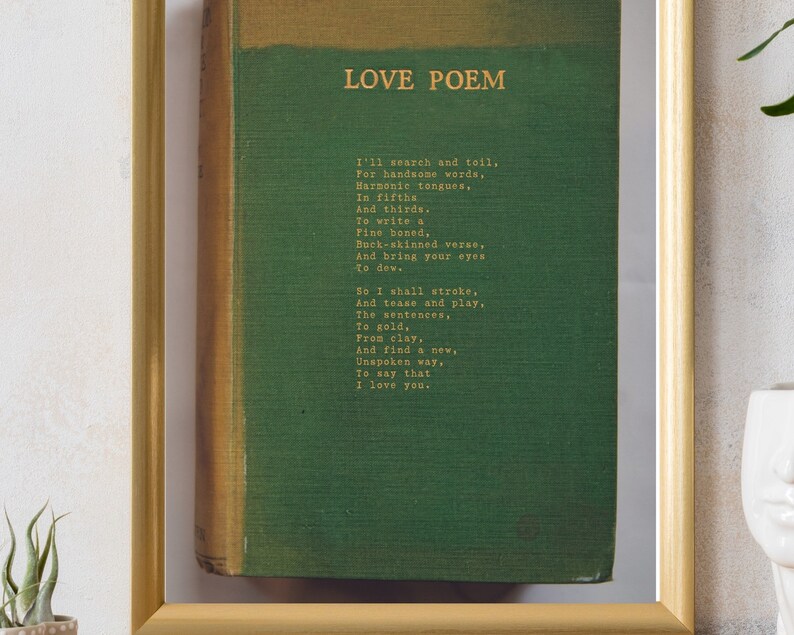 LOVE POEM
I'll search and toil,
For handsome words,
Harmonic tongues,
In fifths
And thirds.
To write a
Fine boned,
Buck-skinned verse,
And bring your eyes
To dew.
So I shall stroke,
And tease and play,
The sentences,
To gold,
From clay,
And find a new,
Unspoken way,
To say that
I love you.